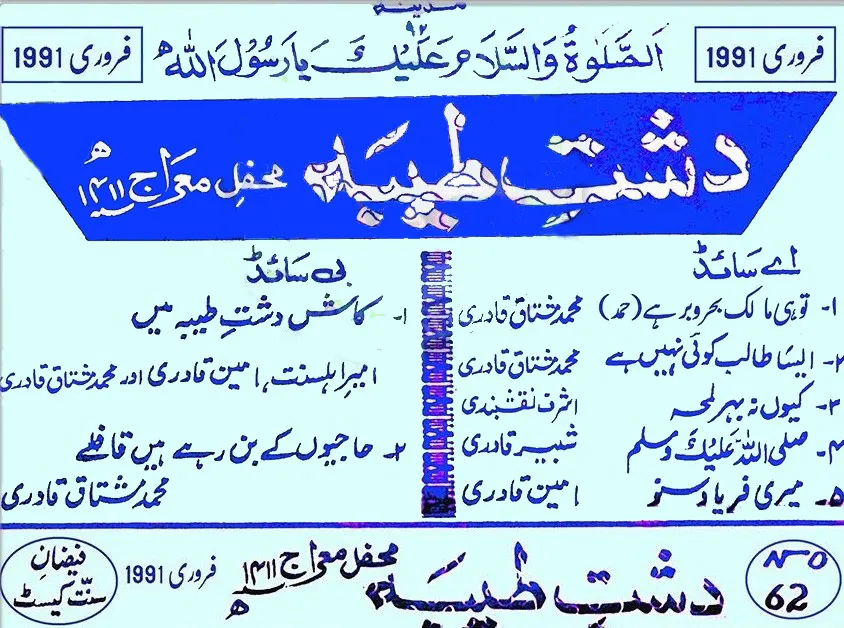 مدینہ
۹۲
فروری 1991
اَلصَّلٰوةُ وَالسَّلَامُ عَلَیْكَ یَا رَسُوْلَ اللّٰه
فروری 1991
دشتِ طیبہ
محفلِ معراج ۱۴۱۱ھ
اے سائڈ
۱۔ توہی مالک بحروبر ہے (حمد) محمد مشتاق قادری
۲۔ ایسا طالب کوئی نہیں ہے محمد مشتاق قادری
۳۔ کیوں نہ بہر لمحہ اشرف نقشبندی
۴۔ صلی اللہ عَلَیْكَ وسلم شبیر قادری
۵۔ میری فریاد سنو امین قادری
بی سائڈ
۱۔ کاش دشتِ طیبہ میں
امیرِ اہلسنت، امین قادری اور محمد مشتاق قادری
۲۔ حاجیوں کے بن رہے ہیں قافلے
محمد مشتاق قادری
NO 62
دشتِ طیبہ
محفل معراج ۱۴۱۱ھ
فروری 1991
فیضانِ سنّت کیسٹ